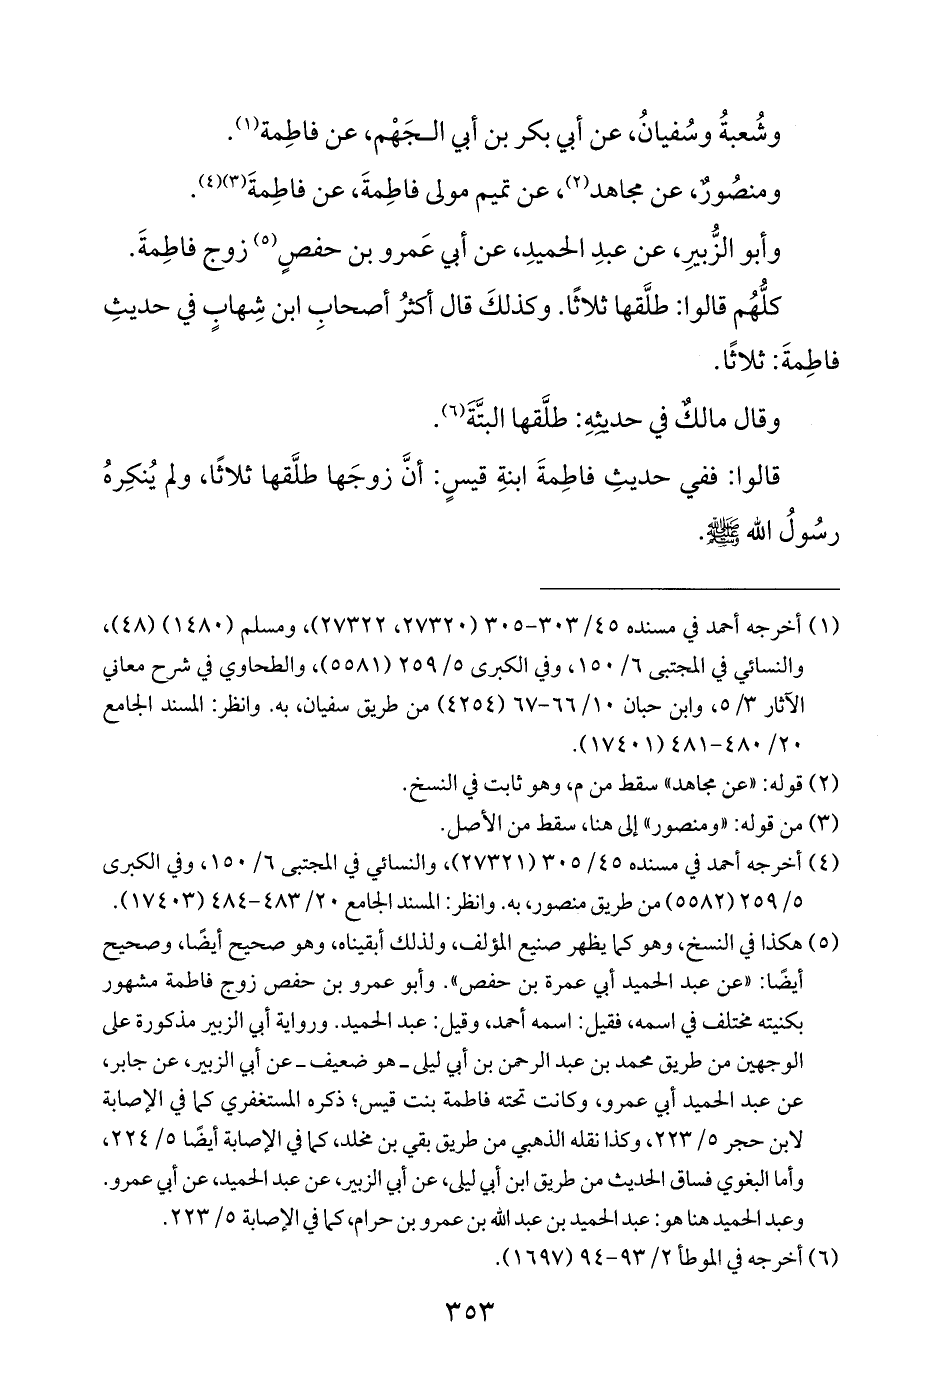 وشُعبةُ وسُفيانُ، عن أبي بكر بن أبي الـجَهْم، عن فاطِمة(١).
ومنصُورٌ، عن مجاهد(٢)، عن تميم مولى فاطِمةَ، عن فاطِمةَ(٣)(٤).
وأبو الزُّبيرِ، عن عبدِ الحميدِ، عن أبي عَمرو بن حفصٍ(٥) زوج فاطِمةَ.
كلُّهُم قالوا: طلَّقها ثلاثًا. وكذلكَ قال أكثرُ أصحابِ ابن شِهابٍ في حديثِ
فاطِمةَ: ثلاثًا.
وقال مالكٌ في حديثِهِ: طلَّقها البتَّةَ(٦).
قالوا: ففي حديثِ فاطِمةَ ابنةِ قيسٍ: أنَّ زوجَها طلَّقها ثلاثًا، ولم يُنكِرهُ
رسُولُ الله ﷺ.
(١) أخرجه أحمد في مسنده ٤٥/ ٣٠٣-٣٠٥ (٢٧٣٢٠، ٢٧٣٢٢)، ومسلم (١٤٨٠) (٤٨)،
والنسائي في المجتبى ٦/ ١٥٠، وفي الكبرى ٥/ ٢٥٩ (٥٥٨١)، والطحاوي في شرح معاني
الآثار ٣/ ٥، وابن حبان ١٠/ ٦٦-٦٧ (٤٢٥٤) من طريق سفيان، به. وانظر: المسند الجامع
٢٠/ ٤٨٠-٤٨١ (١٧٤٠١).
(٢) قوله: «عن مجاهد» سقط من م، وهو ثابت في النسخ.
(٣) من قوله: «ومنصور» إلى هنا، سقط من الأصل.
(٤) أخرجه أحمد في مسنده ٤٥/ ٣٠٥ (٢٧٣٢١)، والنسائي في المجتبى ٦/ ١٥٠، وفي الكبرى
٥/ ٢٥٩ (٥٥٨٢) من طريق منصور، به. وانظر: المسند الجامع ٢٠/ ٤٨٣-٤٨٤ (١٧٤٠٣).
(٥) هكذا في النسخ، وهو كما يظهر صنيع المؤلف، ولذلك أبقيناه، وهو صحيح أيضًا، وصحيح
أيضًا: «عن عبد الحميد أبي عمرة بن حفص». وأبو عمرو بن حفص زوج فاطمة مشهور
بكنيته مختلف في اسمه، فقيل: اسمه أحمد، وقيل: عبد الحميد. ورواية أبي الزبير مذكورة على
الوجهين من طريق محمد بن عبد الرحمن بن أبي ليلى ـ هو ضعيف ـ عن أبي الزبير، عن جابر،
عن عبد الحميد أبي عمرو، وكانت تحته فاطمة بنت قيس؛ ذكره المستغفري كما في الإصابة
لابن حجر ٥/ ٢٢٣، وكذا نقله الذهبي من طريق بقي بن مخلد، كما في الإصابة أيضًا ٥/ ٢٢٤،
وأما البغوي فساق الحديث من طريق ابن أبي ليلى، عن أبي الزبير، عن عبد الحميد، عن أبي عمرو.
وعبد الحميد هنا هو: عبد الحميد بن عبد الله بن عمرو بن حرام، كما في الإصابة ٥/ ٢٢٣.
(٦) أخرجه في الموطأ ٢/ ٩٣-٩٤ (١٦٩٧).
٣٥٣